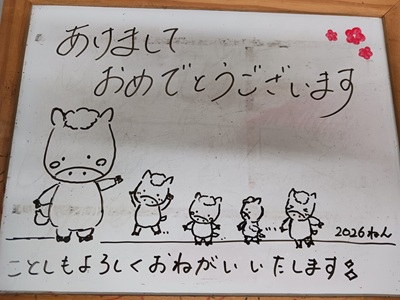 あけまして
おめでとうございます
2026ねん
ことしもよろしくおねがいいたします